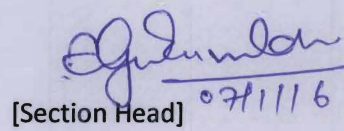 07/1/16
[Section Head]